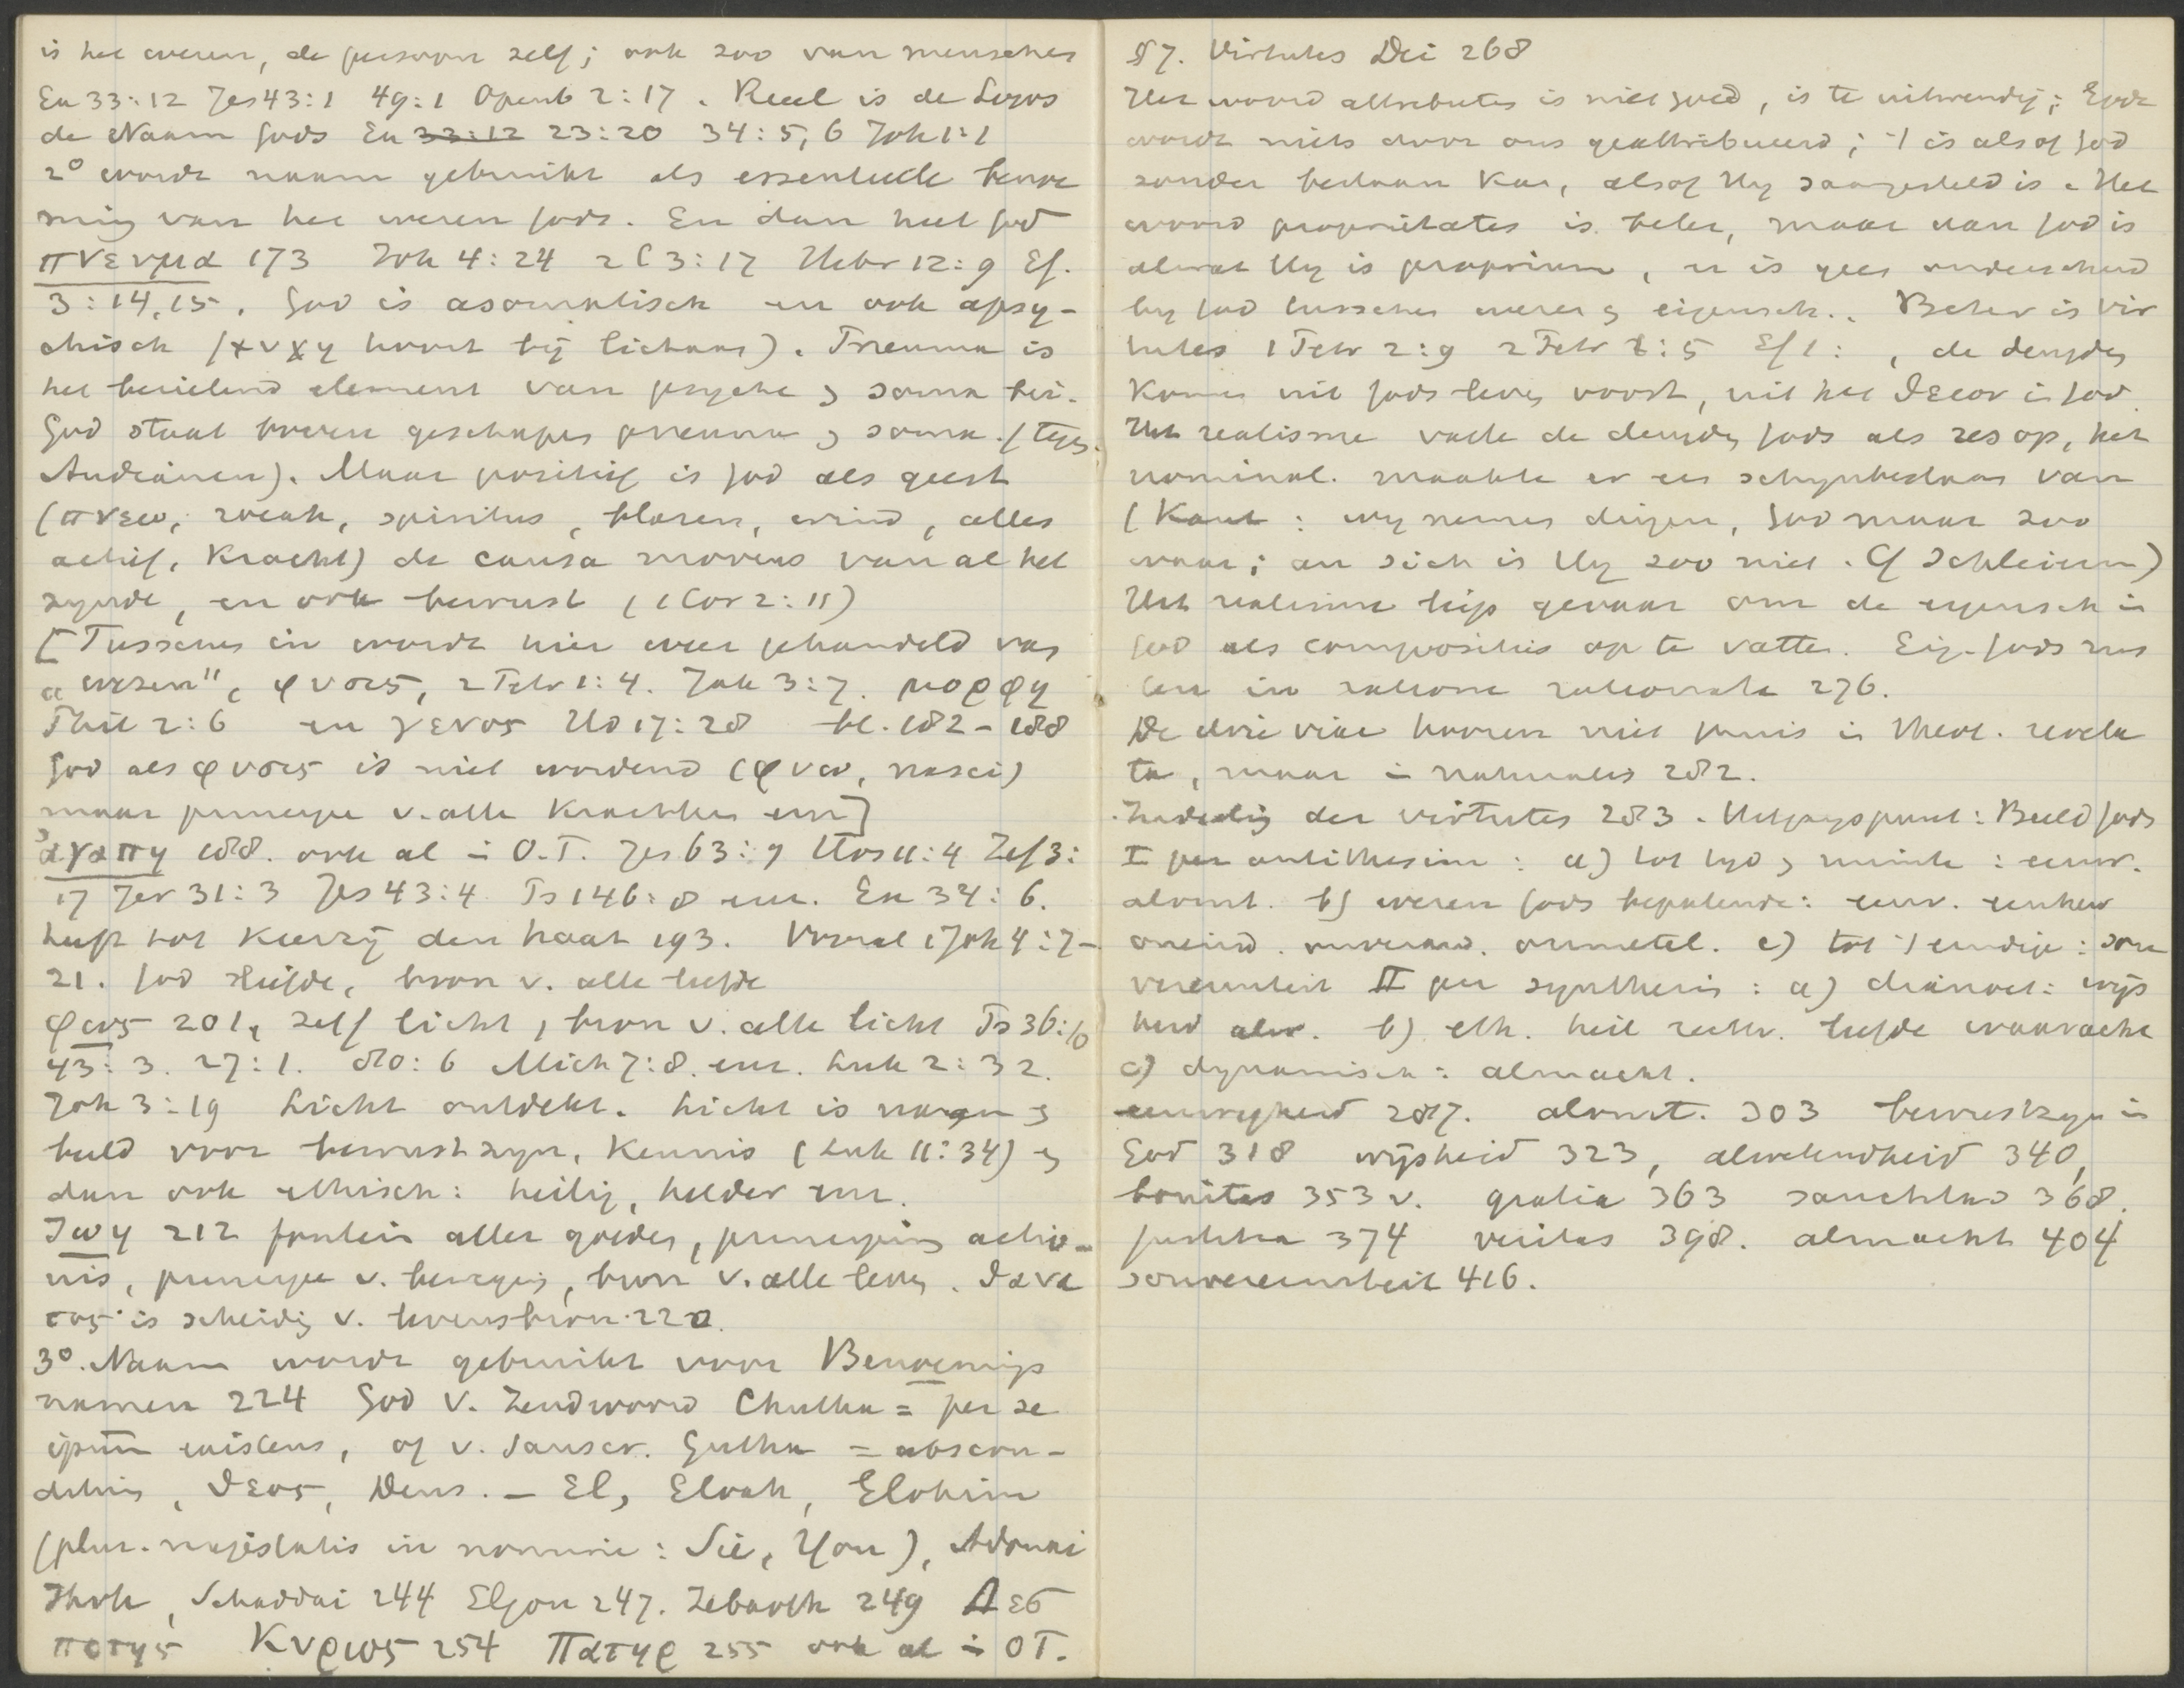 is het wezen, de persoon zelf; ook zoo van menschen
Ex 33:12 Jes 43:1 49:1 Openb 2:17. Reeel is de Logos
de Naam Gods Ex 33:12 23:20 34:5,6 Joh 1:1
2° wordt naam gebruikt als essentieele benoe
ming van het wezen Gods. En dan heet God
πνευμα 173 Joh 4:24 2 C 3:17 Hebr 12:9 Ef.
3:14,15. God is asomatisch en ook apsy-
chisch (ψυχη hoort bij lichaam). Pneuma is
het bezielend element van psyche & soma bei.
God staat boven geschapen pneuma & soma. (tegen
Audianen). Maar positief is God als geest
(πνεω, ruach, spiritus, blazen, wind, alles
actief, kracht) de causa movens van al het
zynde, en ook bewust (1 Cor 2:11)
[Tusschen in wordt hier weer gehandeld van
"wezen", φυσις, 2 Petr 1:4. Jak 3:7. μορφη
Phil 2:6 en γενος Hd 17:28 bl. 182-188
God als φυσις is niet wordend (φυω, nasci)
maar principe v. alle krachten enz]
αγαπη 188. ook al in O.T. Jes 63:9 Hos 11:4 Zef 3:
17 Jer 31:3 Jes 43:4 Ps 146:8 enz. Ex 34:6.
heeft tot keerzij den haat 193. Vooral 1 Joh 4:7-
21. God liefde, bron v. alle liefde
φως 201, zelf licht, bron v. alle licht Ps 36:10
43:3. 27:1. 80:6 Mich 7:8. enz. Luk 2:32.
Joh 3:19 Licht ontdekt. Licht is naam &
beeld voor bewustzyn, kennis (Luk 11:34) &
dan ook ethisch: heilig, helder enz.
Ζωη 212 fontein aller goeden, principium actio-
nis, principe v. beweging, bron v. alle leven. θανα
τος is scheiding v. levensbron. 220.
3°. Naam wordt gebruikt voor Benoemings
namen 224 God v. Zendwoord Chutha = per se
ipsum existens, of v. Sanscr. Gutha = abscon-
ditus, θεος, Deus. — El, Eloah, Elohim
(plur. majestatis in nomine: Sie, You), Adonai
Jhvh, Schaddai 244 Eljon 247. Zebaoth 249 Δεσ
ποτης Κυριος 254 Πατηρ 255 ook al in OT.
§7. Virtutes Dei 268
Het woord attributes is niet goed, is te uitwendig; Gode
wordt niets door ons geattribueerd; 't is alsof God
zonder bestaan kan, alsof Hy saamgesteld is. Het
woord proprietates is beter, maar van God is
alwat Hy is proprium, er is geen onderscheid
by God tusschen wezen & eigensch.. Beter is vir
tutes 1 Petr 2:9 2 Petr 1:5 Ef 1: , de deugden
komen uit Gods leven voort, uit het θειον in God.
Het realisme vatte de deugden Gods als res op, het
nominal. maakte er een schynbestaan van
(Kant: wy nemen dingen, God maar zoo
waar; an sich is Hy zoo niet. Cf Schleierm)
Het realisme liep gevaar om de eigensch in
God als compositus op te vatten. Eig. Gods zus
len in ratione rationata 276.
De drie viae hooren niet thuis in theol. revela
ta, maar in naturalis 282.
Indeeling der virtutes 283. Uitgangspunt: Beeld Gods
I per antithesin: a) tot tyd & ruimte: eeuw.
alomt. b) wezen Gods bepalende: eenv. eenheid
oneind. onverand. onmetel. c) tot 't eindige: sou
vereiniteit II per synthesin: a) dianoet: wijs
heid alw. b) eth. heil rechtv. liefde waaracht
c) dynamisch: almacht.
eeuwigheid 287. alomt. 303 bewustzyn in
God 318 wijsheid 323, alwetendheid 340,
bonitas 353 v. gratia 363 sanctitas 368.
justitia 374 veritas 398. almacht 404
souvereiniteit 416.